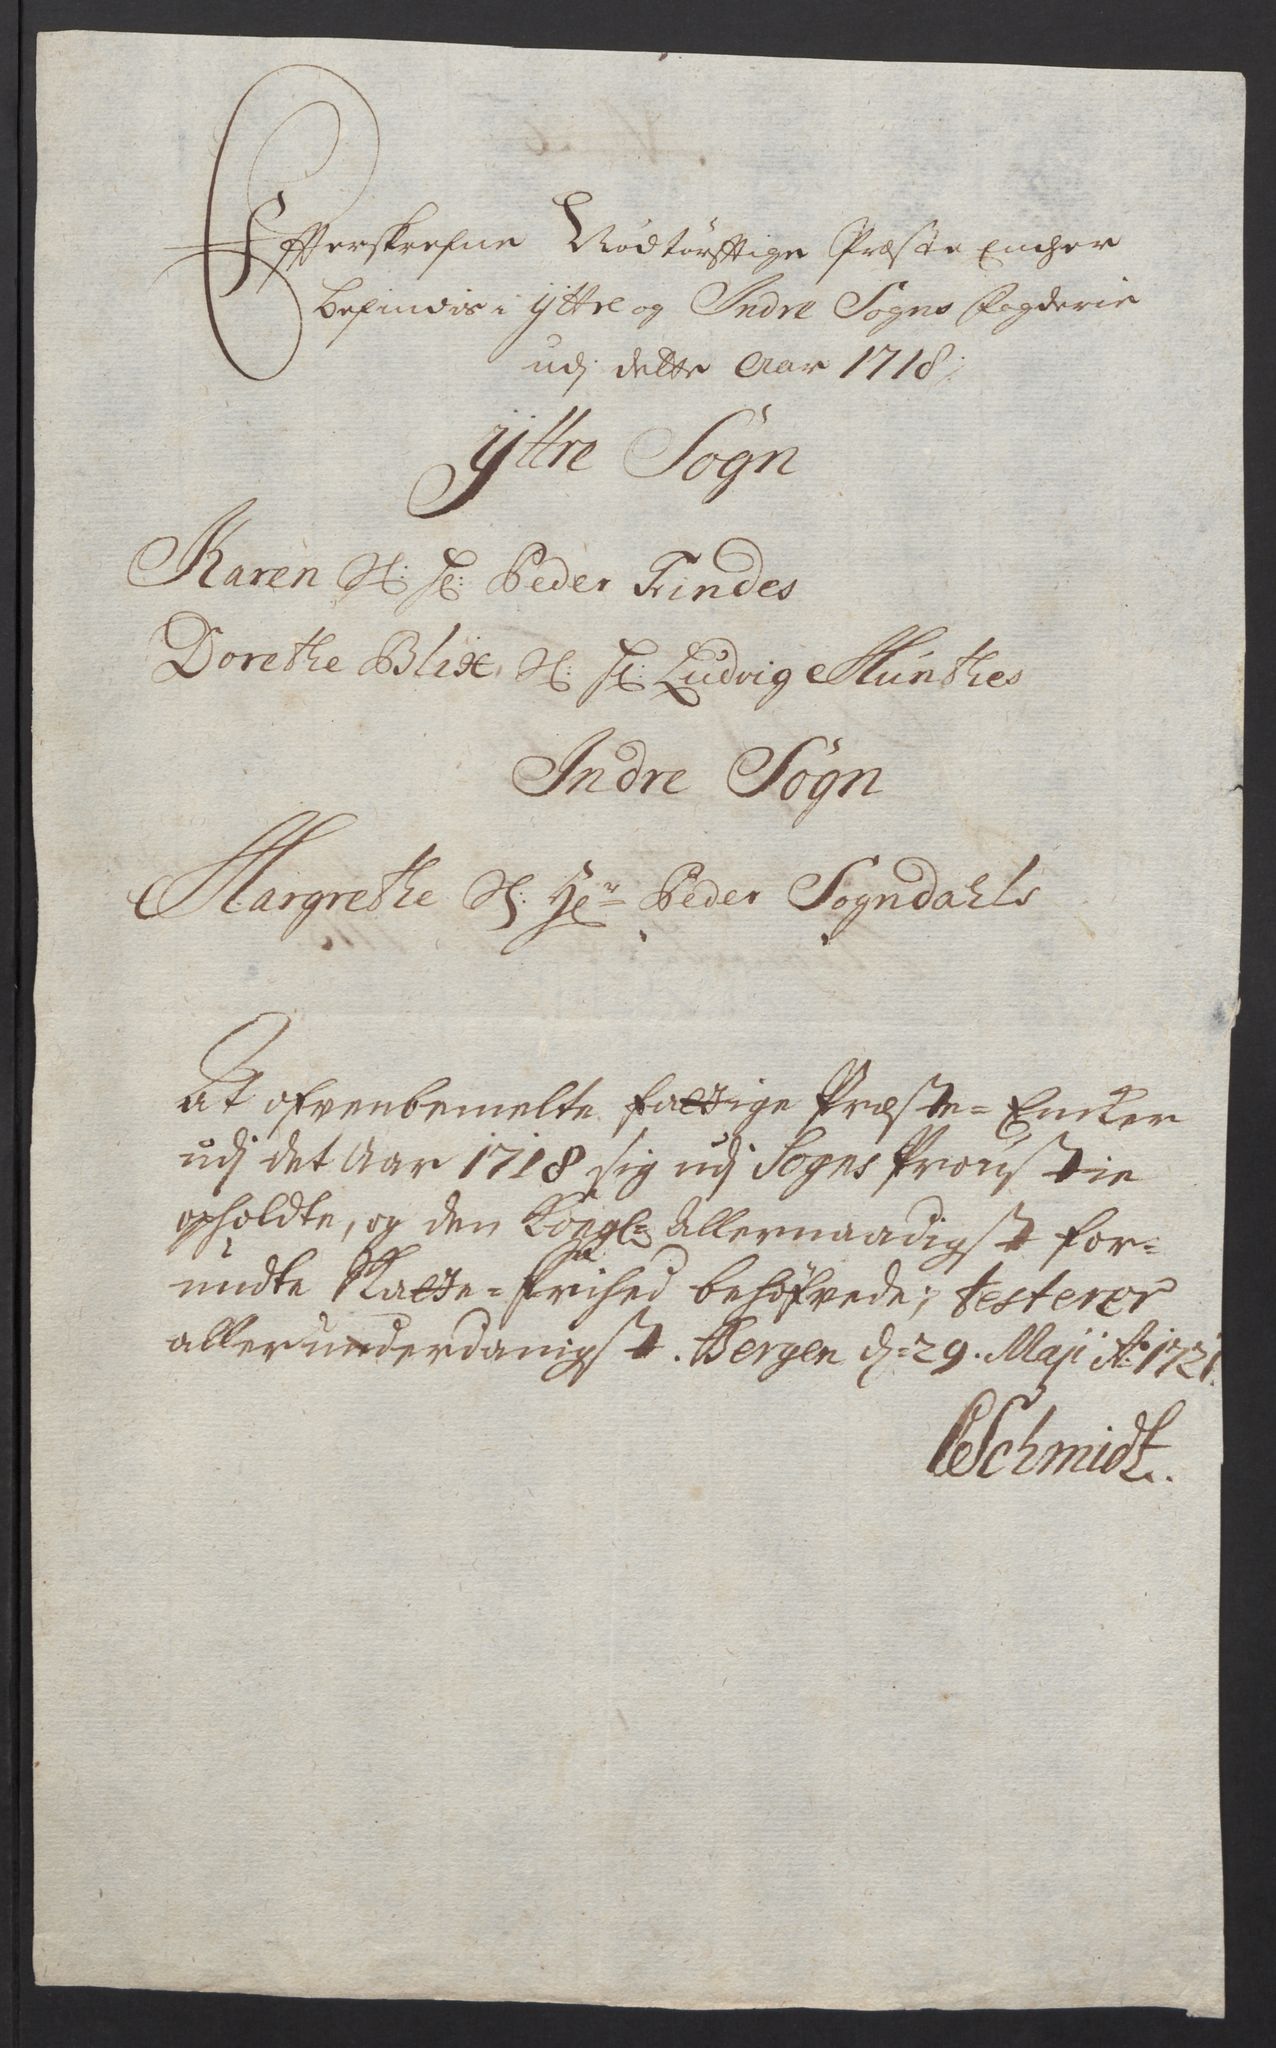 Efterskrefne Nödtörfftige Præste Encher
befindis i ÿttre og Indre Sogns fogderie
udj dette Aar 1718;
ÿttre Sögn
Karen Sl: Hr: Peder Findes
Dorethe Blix, Sl: Hr: Ludvig Munthes
Indre Sögn
Margrethe Sl: Her Peder Sogndahls
At ofvenbemelte fattige Præste=Encker
udj det Aar 1718 sig udj Sogns Proustie
opholdte, og den Kongl: Allernaadigst for=
undte Skatte=frihed behöfvede; testerer
allerunderdanigst. Bergen d: 29. Maji Ao: 1721.
Schmidt.